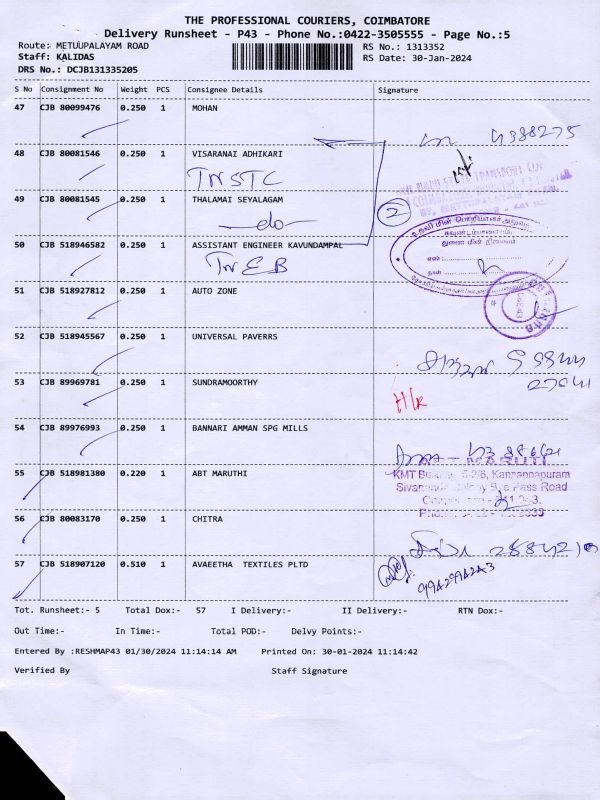 THE PROFESSIONAL COURIERS, COIMBATORE
Delivery Runsheet - P43 - Phone No.:0422-3505555 - Page No.:5
Route: METUUPALAYAM ROAD RS No.: 1313352
Staff: KALIDAS RS Date: 30-Jan-2024
DRS No.: DCJB131335205
S No Consignment No Weight PCS Consignee Details Signature
47 CJB 80099476 0.250 1 MOHAN
9388275
48 CJB 80081546 0.250 1 VISARANAI ADHIKARI
TNSTC
49 CJB 80081545 0.250 1 THALAMAI SEYALAGAM
-do-
2
50 CJB 518946582 0.250 1 ASSISTANT ENGINEER KAVUNDAMPAL
TNEB
51 CJB 518927812 0.250 1 AUTO ZONE
52 CJB 518945567 0.250 1 UNIVERSAL PAVERRS
53 CJB 89969781 0.250 1 SUNDRAMOORTHY
H/R
54 CJB 89976993 0.250 1 BANNARI AMMAN SPG MILLS
MARUTI
55 CJB 518981380 0.220 1 ABT MARUTHI
Kannappapuram
Pass Road
56 CJB 80083170 0.250 1 CHITRA
57 CJB 518907120 0.510 1 AVAEETHA TEXTILES PLTD
Tot. Runsheet:- 5 Total Dox:- 57 I Delivery:- II Delivery:- RTN Dox:-
Out Time:- In Time:- Total POD:- Delvy Points:-
Entered By :RESHMAP43 01/30/2024 11:14:14 AM Printed On: 30-01-2024 11:14:42
Verified By Staff Signature